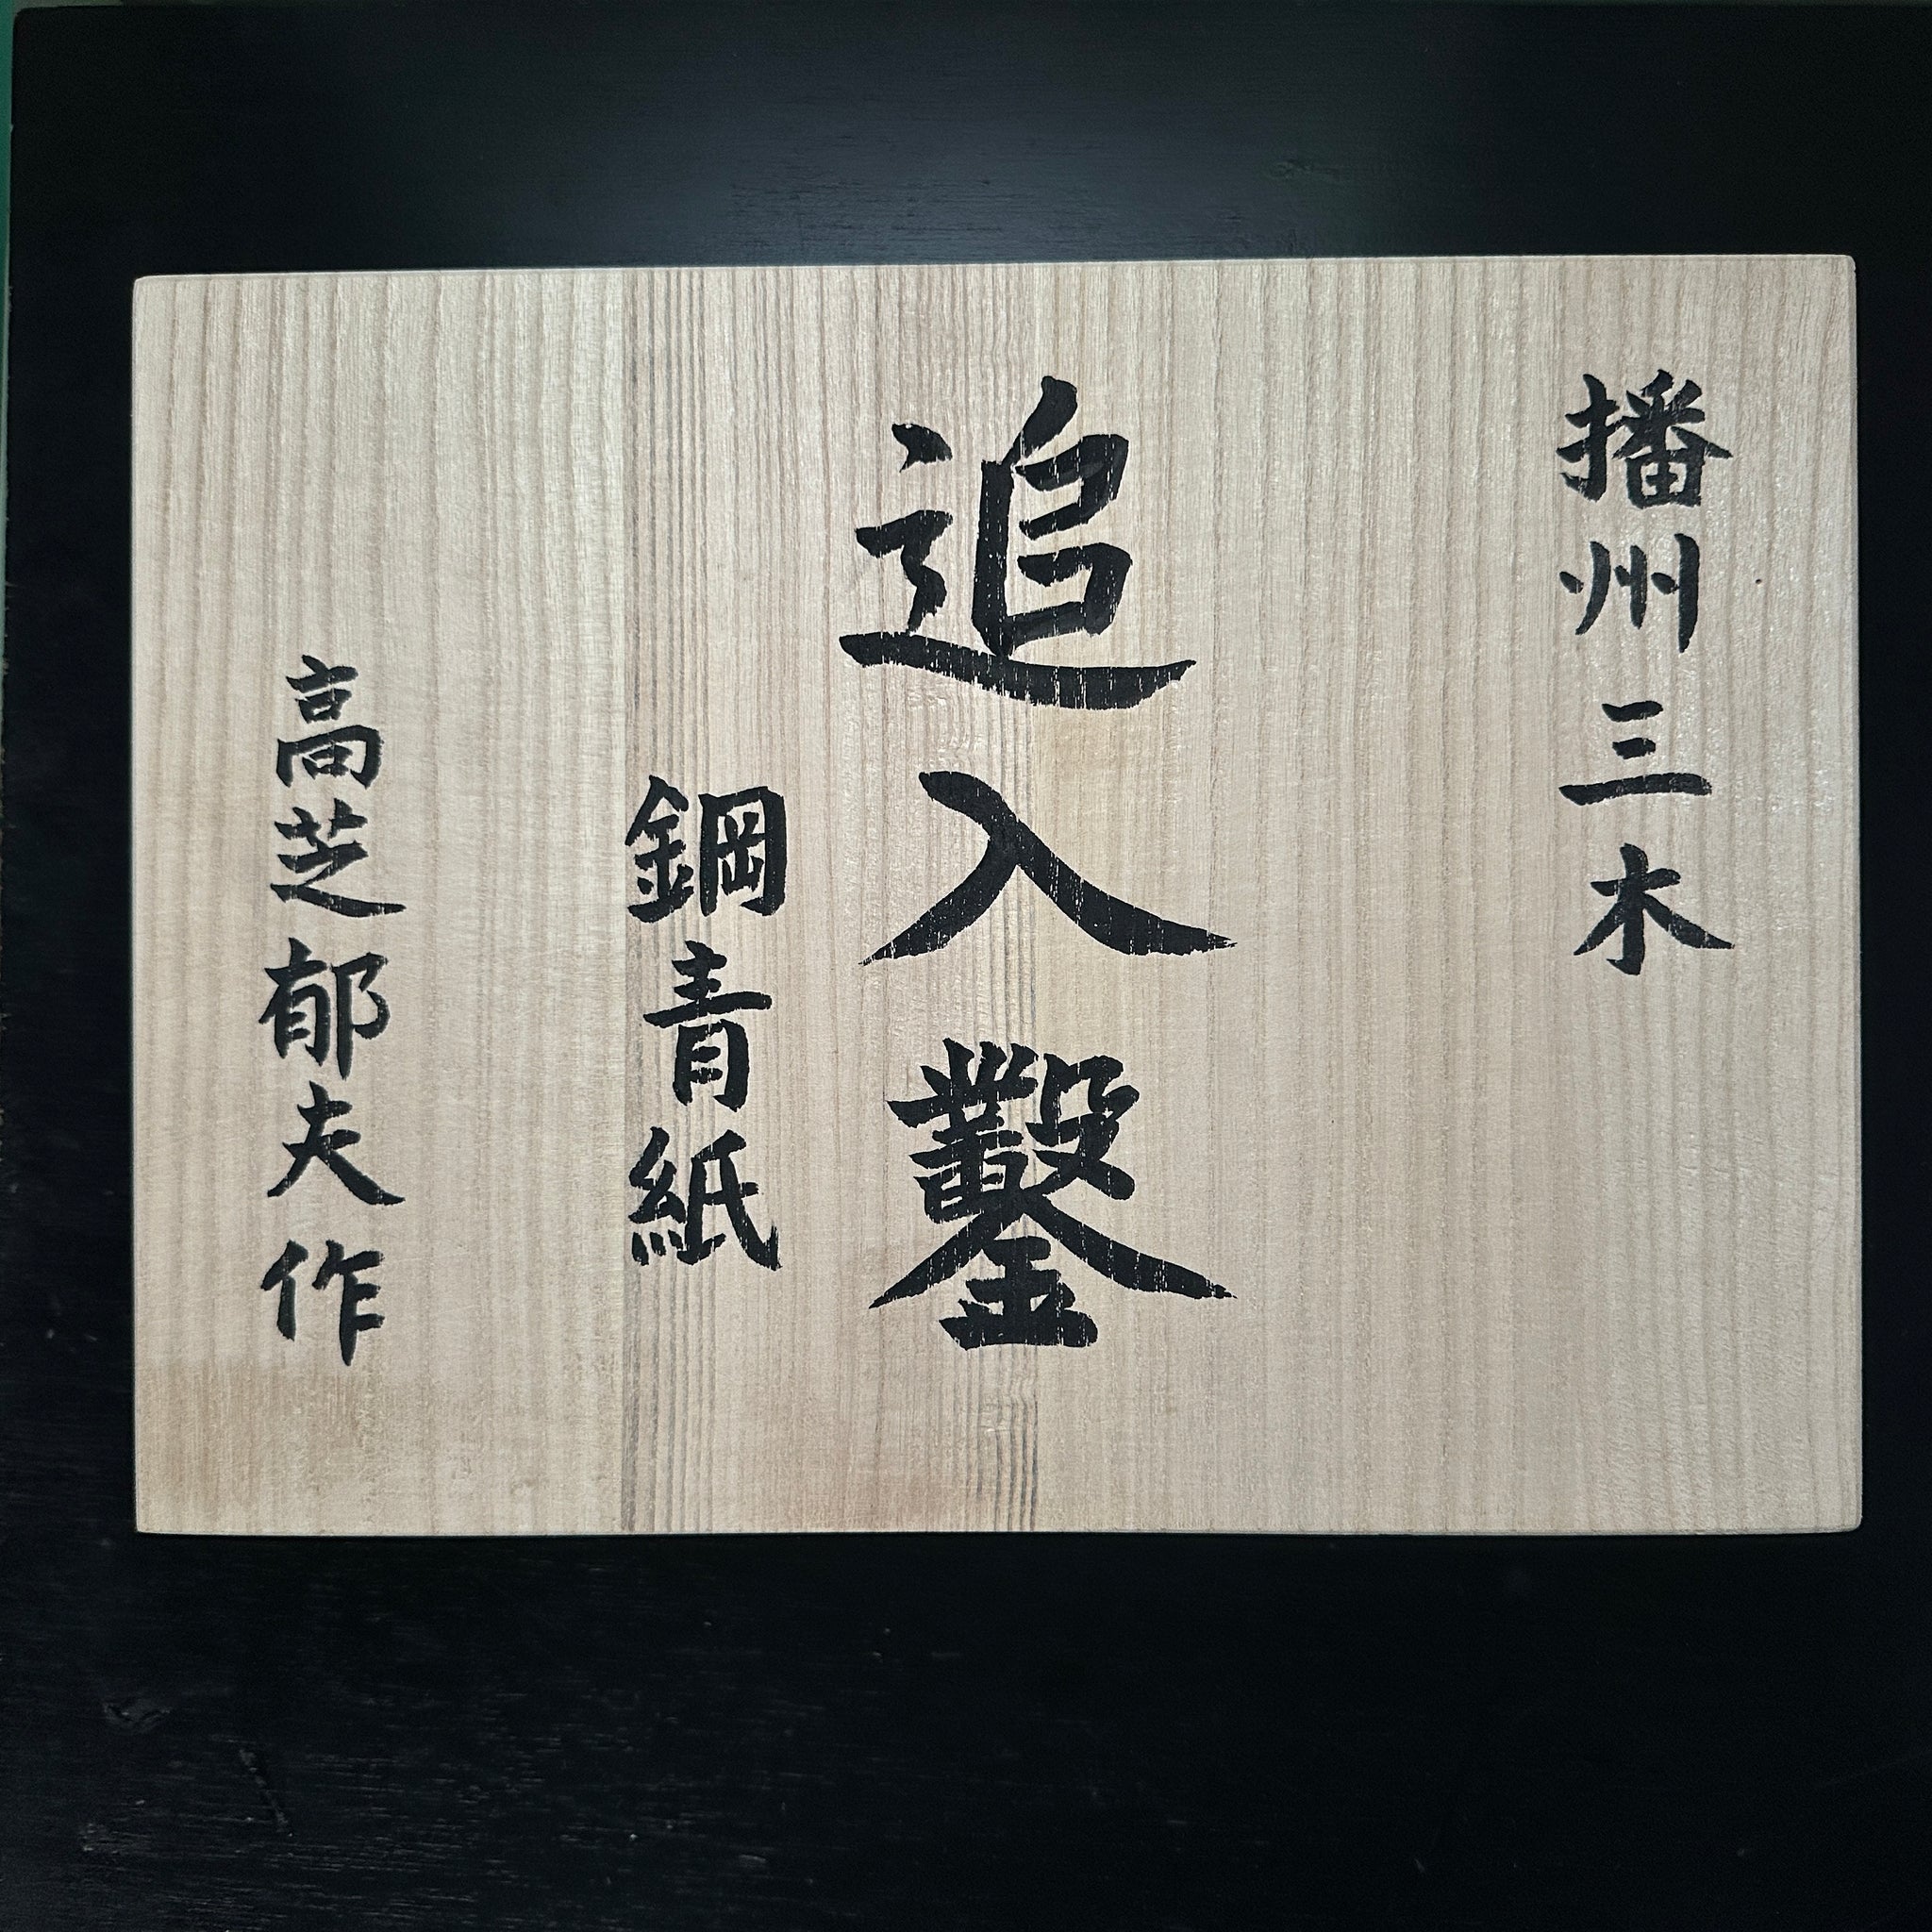 播州三木
追入鑿
鋼青紙
高芝郁夫作